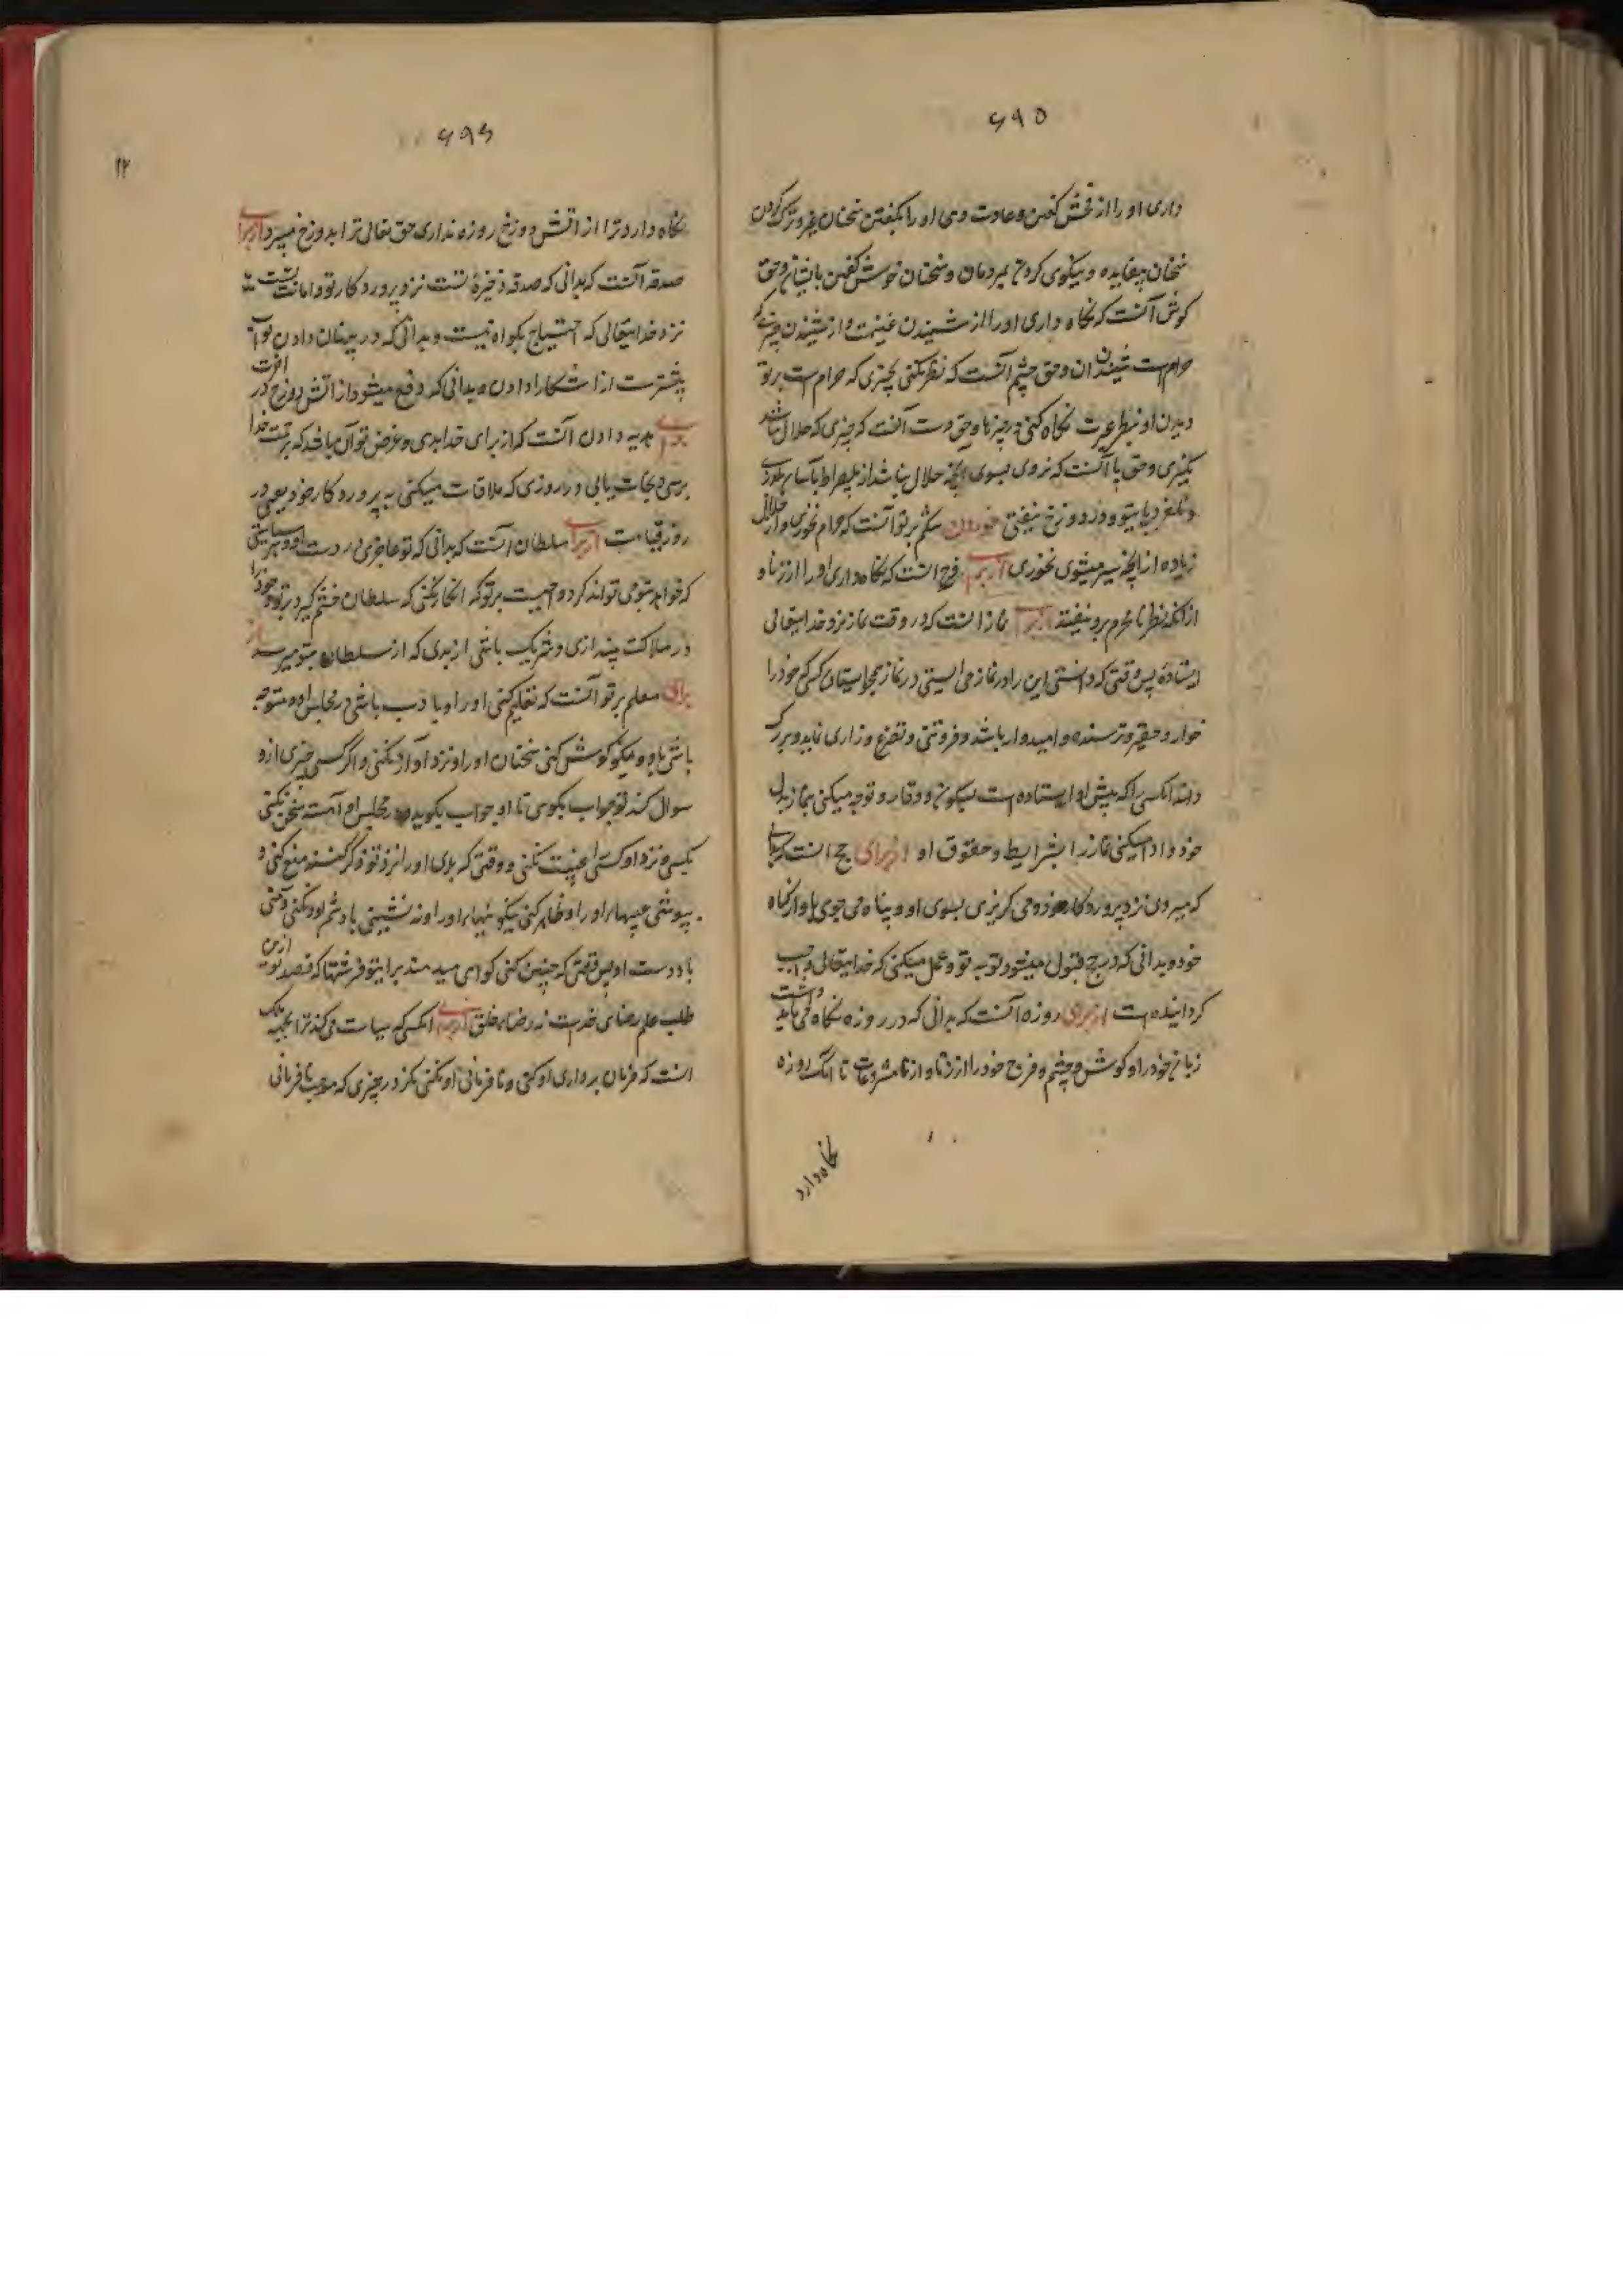 ۶۹۵
داری او را از فحش گفتن و عادت دهی او را بگفتن سخنان خیر و ترک کردن
سخنان بیفایده و نیکوی کردن بمردمان و سخنان خوش گفتن با ایشان و حق
کوش آنست که نگاه داری او را از شنیدن غیبت و از شنیدن چیزی که
حرام است شنیدن آن و حق چشم آنست که نظر نکنی بچیزی که حرام است بر تو
دیدن او و بنظر عبرت نگاه کنی در چیزها و حق دست آنست که چیزی که حلال نباشد
نگیری و حق پا آنست که نروی بسوی آنچه حلال نباشد از پلصراط بآسانی بگذری
و نلغزد پای تو و در دوزخ نیفتی خوردن شکم بر تو آنست که حرام نخوری و از حلال
زیاده از آنچه سیر میشوی نخوری از برای فرج آنست که نگاه داری او را از زنا و
از آنکه نظر نامحرم برو نیفتد از برای نماز آنست که در وقت نماز نزد خدایتعالی
ایستادهٔ پس وقتی که دانستی این را در نماز می ایستی در نماز همچو ایستادن کسی که خود را
خوار و حقیر و ترسنده و امیدوار باشد و فروتنی و تضرع و زاری نماید و بزرک
داند آنکسی را که پیش او ایستاده است بسکون و وقار و توجه میکنی بنماز بدل
خود و ادا میکنی نماز را بشرایط و حقوق او از برای حج آنست که بدانی
که میروی نزد پروردکار خود و می کریزی بسوی او و پناه می جوی باو از کناه
خود و بدانی که در حج قبول میشود توبه تو و عمل میکنی که خدایتعالی واجب
کردانیده است از برای روزه آنست که بدانی که در روزه نگاه می باید داشت
زبان خود را و کوش و چشم و فرج خود را از زنا و از نامشروعات تا آنکه روزه
نگاه دارد
۶۹۶
۱۲
نگاه دارد ترا از آتش دوزخ روزه نداری حق تعالی ترا بدوزخ میبرد از برای
صدقه آنست که بدانی که صدقه ذخیرهٔ تست نزد پروردکار تو و امانت تست
نزد خدایتعالی که احتیاج بکواه نیست و بدانی که در پنهان دادن ثواب
بیشتر است از آشکارا دادن و بدانی که دفع میشود از آتش دوزخ در آخرت
برای هدیه دادن آنست که از برای خدا بدهی و غرض تو آن باشد که برحمت خدا
برسی و نجات یابی در روزی که ملاقات میکنی به پروردکار خود یعنی در
روز قیامت از برای سلطان آنست که بدانی که تو عاجزی در دست او و هر سیاستی
که خواهد بتو می تواند کرد و واجبست بر تو که انکار نکنی که سلطان خشم کیرد بر تو و خود را
در هلاکت بیندازی و شریک باشی از بدی که از سلطان بتو میرسد از
برای معلم بر تو آنست که تعظیم کنی او را و با ادب باشی در مجلس او و متوجه
باشی باو و نیکو کوش کنی سخنان او را و نزد او آواز نکنی و اکر کسی چیزی از او
سوال کند تو جواب نکوی تا او جواب بکوید و در مجلس او آهسته سخن نکنی
بکسی و نزد او کسی را غیبت نکنی و وقتی که بدی او را نزد تو ذکر کنند منع کنی و
بپوشی عیبهای او را و ظاهر کنی نیکوئیهای او را و نه نشینی با دشمن او و نکنی دشمنی
با دوست او پس وقتی که چنین کنی کواهی میدهند برای تو فرشتها که قصد تو از این
طلب علم رضای خداست نه رضای خلق از برای آنکسی که سیاست می کند ترا
آنست که فرمان برداری او کنی و نافرمانی او نکنی مکر در چیزی که موجب نافرمانی